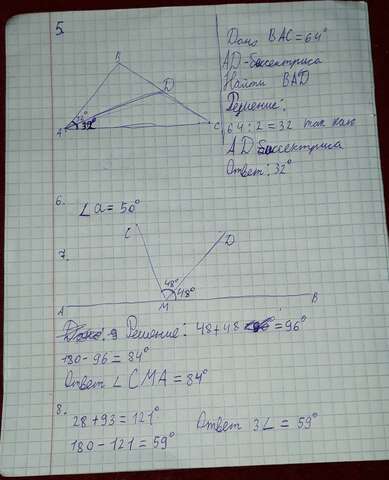 5.
B
D
A
C
32°
32°
Дано BAC = 64°
AD - биссектриса
Найти BAD
Решение:
64 : 2 = 32 так как
AD биссектриса
Ответ: 32°
6.
∠a = 50°
7.
C
D
48°
48°
A
M
B
Решение: 48 + 48 = 96°
180 - 96 = 84°
Ответ ∠CMA = 84°
8.
28 + 93 = 121°
180 - 121 = 59°
Ответ 3∠ = 59°